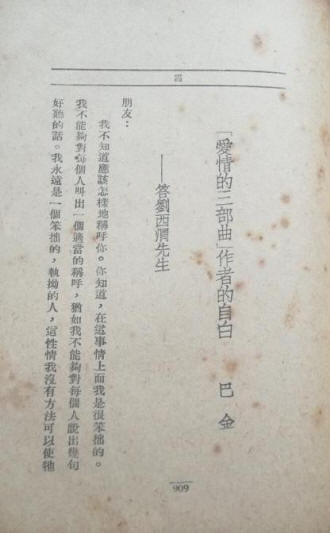 霧
「愛情的三部曲」作者的自白
巴金
——答劉西渭先生
朋友：
我不知道應該怎樣地稱呼你。你知道，在這事情上面我是很笨拙的。
我不能夠對每個人叫出一個適當的稱呼，猶如我不能夠對每個人說出幾句
好聽的話。我永遠是一個笨拙的人，執拗的人，這性情我沒有方法可以使牠
909